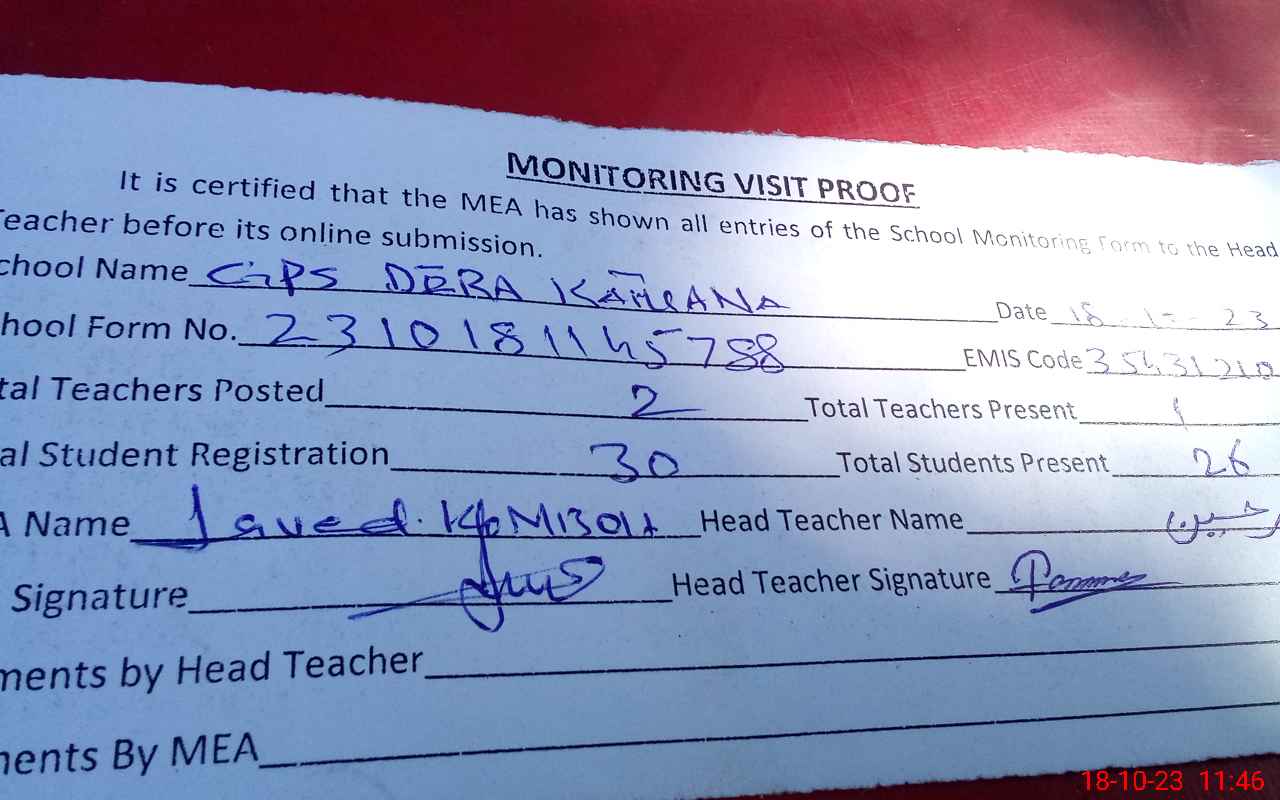 MONITORING VISIT PROOF
It is certified that the MEA has shown all entries of the School Monitoring Form to the Head
Teacher before its online submission.
chool Name GPS DERA Date 18 23
hool Form No. 2310181145788 EMIS Code 35431210
tal Teachers Posted 2 Total Teachers Present 1
al Student Registration 30 Total Students Present 26
A Name Javed Head Teacher Name حسین
Signature Head Teacher Signature
ments by Head Teacher
ments By MEA
18-10-23 11:46